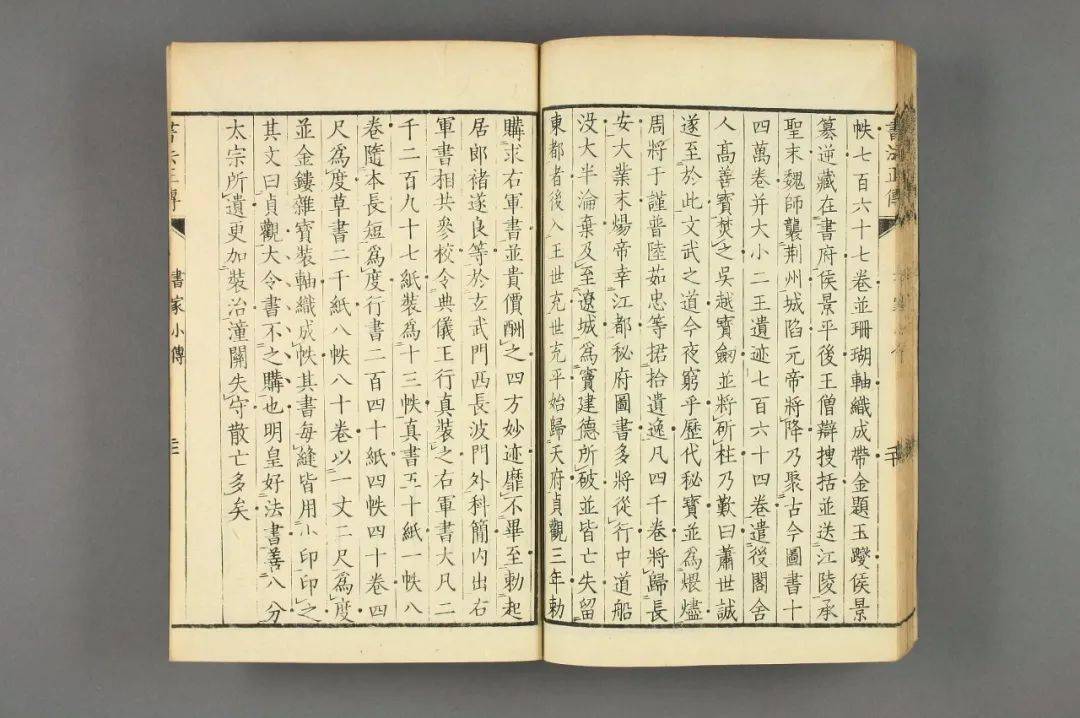 帙七百六十七卷並珊瑚軸織成帶金題玉躞侯景
篡逆藏在書府侯景平後王僧辯搜括並送江陵承
聖末魏師襲荆州城陷元帝將降乃聚古今圖書十
四萬卷并大小二王遺迹七百六十四卷遣後閣舍
人高善寳焚之吳越寳劒並將斫柱乃歎曰蕭世誠
遂至於此文武之道今夜窮乎歷代秘寳並爲煨燼
周將于謹普陸茹忠等捃拾遺逸凡四千卷將歸長
安大業末煬帝幸江都秘府圖書多將從行中道船
没大半淪棄及至遼城爲竇建德所破並皆亡失留
東都者後入王世充世充平始歸天府貞觀三年勅
購求右軍書並貴價酬之四方妙迹靡不畢至勅起
居郎褚遂良等於玄武門西長波門外科簡内出右
軍書相共叅校令典儀王行真裝之右軍書大凡二
千二百九十七紙裝爲十三帙真書五十紙一帙八
卷隨本長短爲度行書二百四十紙四帙四十卷四
尺爲度草書二千紙八帙八十卷以一丈二尺爲度
並金鏤雜寳裝軸織成帙其書每縫皆用小印印之
其文曰貞觀大令書不之購也明皇好法書善八分
太宗所遺更加裝治潼關失守散亡多矣
書家小傳